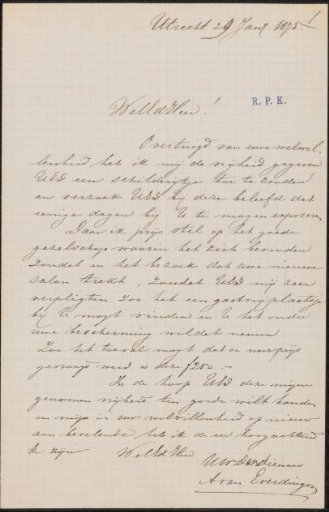 Utrecht 29 Jan 1895!
WelEdHeer!
R. P. K.
Overtuigd van uwe welwil-
lendheid heb ik mij de vrijheid gegeven
UEd een schilderijtje toe te zenden
en verzoek UEd bij deze beleefd dat
eenige dagen bij U te mogen exposeeren
Daar ik prijs stel op het goede
gezelschap waarin het zich bevinden
zoude en het bezoek dat uwe nieuwe
salon trekt, zoudet UEd mij zeer
verpligten zoo het een gastvrij plaatsje
bij U mogt vinden en U het onder
uwe bescherming wildet nemen
Zoo het toeval mogt dat er naar prijs
gevraagd werd is deze f250.-
In de hoop UEd deze mijne
genomen vrijheid ten goede wilt houden
en mij in uw welwillendheid op nieuw
aan bevelende, heb ik de eer hoogachtend
te zijn WelEdHeer
UwDwDienaar
A van Everdingen